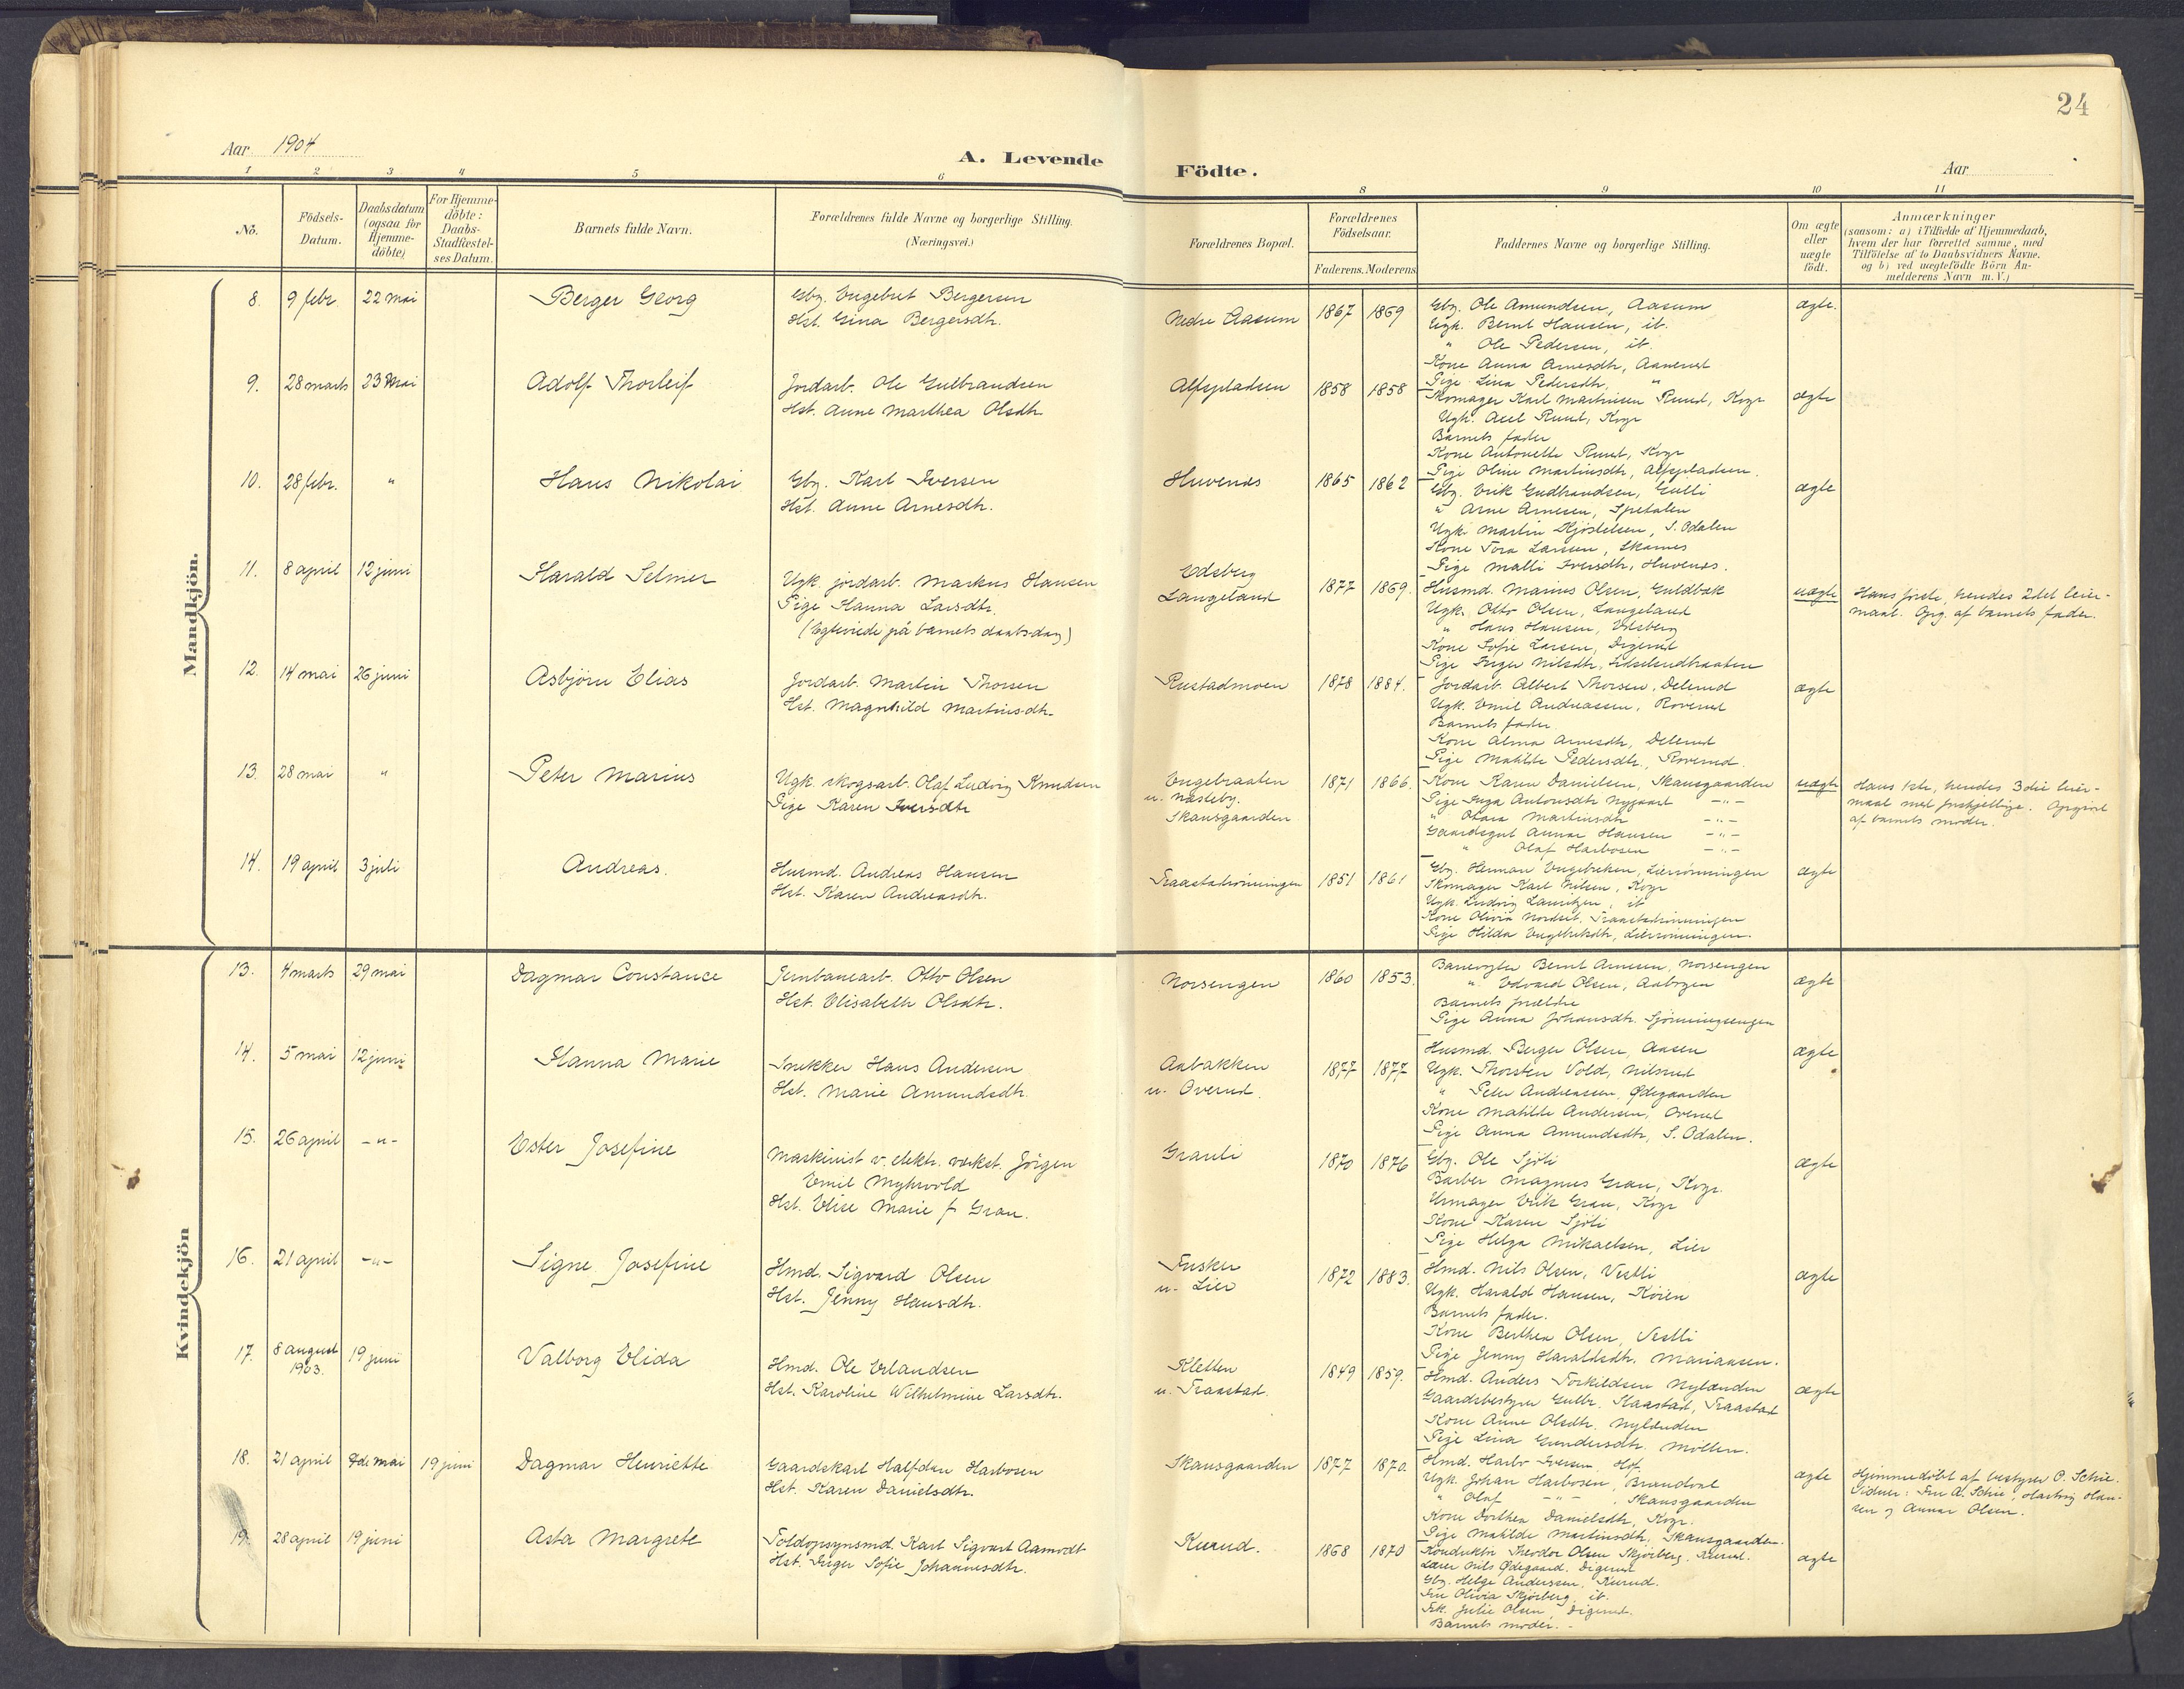 24
Aar 1904
A. Levende
Födte.
Aar
1 2 3 4 5 6 8 9 10 11
No.
Födsels-
Datum.
Daabsdatum
(ogsaa for
Hjemme-
döbte)
For Hjemme-
döbte:
Daabs-
Stadfæstel-
ses Datum.
Barnets fulde Navn.
Forældrenes fulde Navne og borgerlige Stilling.
(Næringsvei.)
Forældrenes Bopæl.
Forældrenes
Födselsaar.
Faderens. Moderens
Faddernes Navne og borgerlige Stilling.
Om ægte
eller
uægte
födt.
Anmærkninger
(saasom: a) i Tilfælde af Hjemmedaab,
hvem der har forrettet samme, med
Tilföielse af to Daabsvidners Navne,
og b) ved uægtefödte Börn An-
melderens Navn m. V.)
Mandkjön.
8. 9 febr. 22 mai
Berger Georg
Gbg. Engebret Bergersen
Hst. Gina Bergersdtr.
Nedre Aasum
1867 1869
Gbg. Ole Amundsen, Aasum
Ugk. Bernt Hansen, ib.
" Ole Pedersen, ib.
Kone Anna Arnesdtr, Aanerud
Pige Lina Pedersdtr, "
ægte.
9. 28 marts 23 Mai
Adolf Thorleif
Jordarb. Ole Gulbrandsen
Hst. Anne Marthea Olsdtr
Alfspladsen
1858 1858
Skomager Karl Martinsen Ruud, Kvgr
Ugk. Axel Ruud, Kvgr
Barnets fader
Kone Antonette Ruud, Kvgr
Pige Oline Martinsdtr, Alfspladsen.
ægte
10. 28 febr. "
Hans Nikolai
Gbg. Karl Iversen
Hst. Anne Arnesdtr.
Huvenes
1865 1862
Gbg. Erik Gudbrandsen, Gulli
" Arne Arnesen, Spetalen
Ugk. Martin Kjöstelsen, S. Odalen
Kone Tora Larsen, Skarnes
Pige Malli Iversdtr, Huvenes.
ægte
11. 8 april 12 juni
Harald Selmer
Ugk. jordarb. Markus Hansen
Pige Hanna Larsdtr.
(Egteviede på barnets daabsdag)
Edsberg
Langeland
1877 1869.
Husmd. Marius Olsen, Guldbæk
Ugk. Otto Olsen, Langeland
" Hans Hansen, Edsberg
Kone Sofie Larsen, Digerud
Pige Inger Nilsdtr,
uægte
Hans förste, hendes 2det leier-
maal. Opg. af barnets fader.
12. 14 mai 26 juni
Asbjörn Elias
Jordarb. Martin Thorsen
Hst. Magnhild Martinsdtr.
Rustadmoen
1878 1884.
Jordarb. Albert Thorsen, Delerud
Ugk. Emil Andreassen, Roverud
Barnets fader
Kone Alma Arnesdtr, Delerud
Pige Mathilde Pedersdtr., Roverud.
ægte
13. 28 mai "
Peter Marius
Ugk. skogsarb. Olaf Ludvig Knudsen
Pige Karen Iversdtr
Engebraaten
u. Næsteby.
Skansgaarden
1871 1866.
Kone Karen Danielsen, Skansgaarden
Pige Inga Antonsdtr Nygaard -"-
" Olava Martinsdtr -"-
Gaardsgut Annar Hansen -"-
" Olaf Harbosen -"-
uægte
Hans 1ste, hendes 3die leier-
maal med forskjellige. Opgivet
af barnets moder.
14. 19 april 3 juli
Andreas.
Husmd. Andreas Hansen
Hst. Karen Andreasdtr.
Traastadrönningen
1851 1861
Gbg. Herman Engebretsen, Lierrönningen
Skomager Karl Nilsen, Kvgr
Ugk. Ludvig Lauritzen, ib
Kone Olivia Nordseth, Traastadrönningen
Pige Hilda Engebretsdtr, Lierrönningen.
ægte
Kvindekjön
13. 4 marts 29 mai
Dagmar Constance
Jernbanearb. Otto Olsen
Hst. Elisabeth Olsdtr.
Norsengen
1860 1853.
Banevogter Bernt Arnesen, Norsengen
" Edvard Olsen, Aabogen
Barnets forældre
Pige Anna Johansdtr.
ægte
14. 5 mai 12 juni
Hanna Marie
Snekker Hans Andersen
Hst. Marie Amundsdtr.
Aabakken
u. Overud.
1877 1877
Husmd. Berger Olsen, Aasen
Ugk. Thorsten Vold, Nilsrud
" Peter Andreassen, Ødegaarden
Kone Mathilde Andersen, Overud
Pige Anna Amundsdtr, S. Odalen.
ægte
15. 26 april -"-
Ester Josefine
Maskinist v. elektr. verkst. Jörgen
Emil Myhrvold
Hst. Elise Marie f. Grau.
Granli
1870 1876
Gbg. Ole Sjöli
Barber Magnus Grau, Kvgr.
Urmager Erik Grau, Kvgr
Kone Karen Sjöli
Pige Helga Mikaelsen, Lier
ægte
16. 21 april -"-
Signe Josefine
Hmd. Sigvard Olsen
Hst. Jenny Hansdtr.
Fusker
u. Lier
1872 1883.
Hmd. Nils Olsen, Vestli
Ugk. Harald Hansen, Koien
Barnets fader.
Kone Berthea Olsen, Vestli
Pige Jenny Haraldsdtr. Mariaasen.
ægte
17. 8 august 1903. 19 juni
Valborg Elida
Hmd. Ole Erlandsen
Hst. Karoline Wilhelmine Larsdtr.
Kletten
u. Traastad.
1849 1859.
Hmd. Anders Torkildsen Nylænden
Gaardsbestyrer Gulbr. Kaastad, Traastad
Kone Anne Olsdtr. Nylænden
Pige Lina Gundersdtr. Möllen.
ægte
18. 21 april 8de mai 19 juni
Dagmar Henriette
Gaardskarl Halfdan Harbosen
Hst. Karen Danielsdtr.
Skansgaarden
1877 1870.
Hmd. Harbo Iversen Hof
Ugk. Johan Harbosen, Brandval
" Olaf -"- , Skansgaarden
Kone Dorthea Danielsdtr, Kvgr.
Pige Mathilde Martinsdtr, Skansgaarden.
ægte
Hjemmedöbt af bestyrer O. Schie.
Vidner: Fru A. Schie, Hartvig Han-
sen og Annar Olsen.
19. 28 april 19 juni
Asta Margrete
Toldopsynsmd. Karl Sigvart Aamodt
Hst. Inger Sofie Johannesdtr.
Kurud.
1868 1870
Konduktör Theodor Olsen Skjörberg, Kurud.
Lærer Nils Ødegaard, Digerud
Gbg. Helge Anderssen, Kurud.
Fru Olivia Skjörberg, ib.
Frk. Julie Olsen, Digerud.
Barnets moder. -
ægte